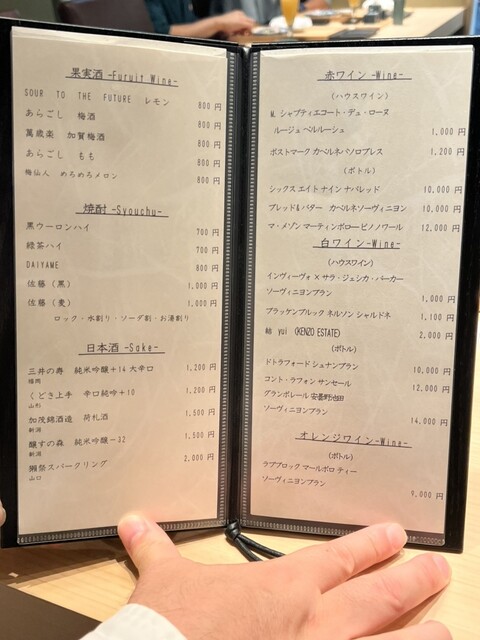 果実酒 -Furuit Wine-
SOUR TO THE FUTURE レモン 800 円
あらごし 梅酒 800 円
萬歳楽 加賀梅酒 800 円
あらごし もも 800 円
梅仙人 めろめろメロン 800 円
焼酎 -Syouchu-
黒ウーロンハイ 700 円
緑茶ハイ 700 円
DAIYAME 800 円
佐藤 (黒) 1,000 円
佐藤 (麦) 1,000 円
ロック・水割り・ソーダ割・お湯割り
日本酒 -Sake-
三井の寿 純米吟醸+14 大辛口 1,200 円
福岡
くどき上手 辛口純吟+10 1,200 円
山形
加茂錦酒造 荷札酒 1,500 円
新潟
醸すの森 純米吟醸-32 1,500 円
新潟
獺祭スパークリング 2,000 円
山口
赤ワイン -Wine-
(ハウスワイン)
M. シャプティエコート・デュ・ローヌ
ルージュ ベルルーシュ 1,000 円
ポストマーク カベルネパソロブレス 1,200 円
(ボトル)
シックス エイト ナイン ナパレッド 10,000 円
ブレッド&バター カベルネソーヴィニヨン 10,000 円
マ・メゾン マーティンボロー ピノノワール 12,000 円
白ワイン-Wine-
(ハウスワイン)
インヴィーヴォ × サラ・ジェシカ・パーカー
ソーヴィニヨンブラン 1,000 円
ブラッケンブルック ネルソン シャルドネ 1,100 円
結 yui (KENZO ESTATE) 2,000 円
(ボトル)
ドトラフォード シュナンブラン 10,000 円
コント・ラフォン サンセール 12,000 円
グランポレール 安曇野池田
ソーヴィニヨンブラン 14,000 円
オレンジワイン-Wine-
(ボトル)
ラブブロック マールボロ ティー
ソーヴィニヨンブラン 9,000 円